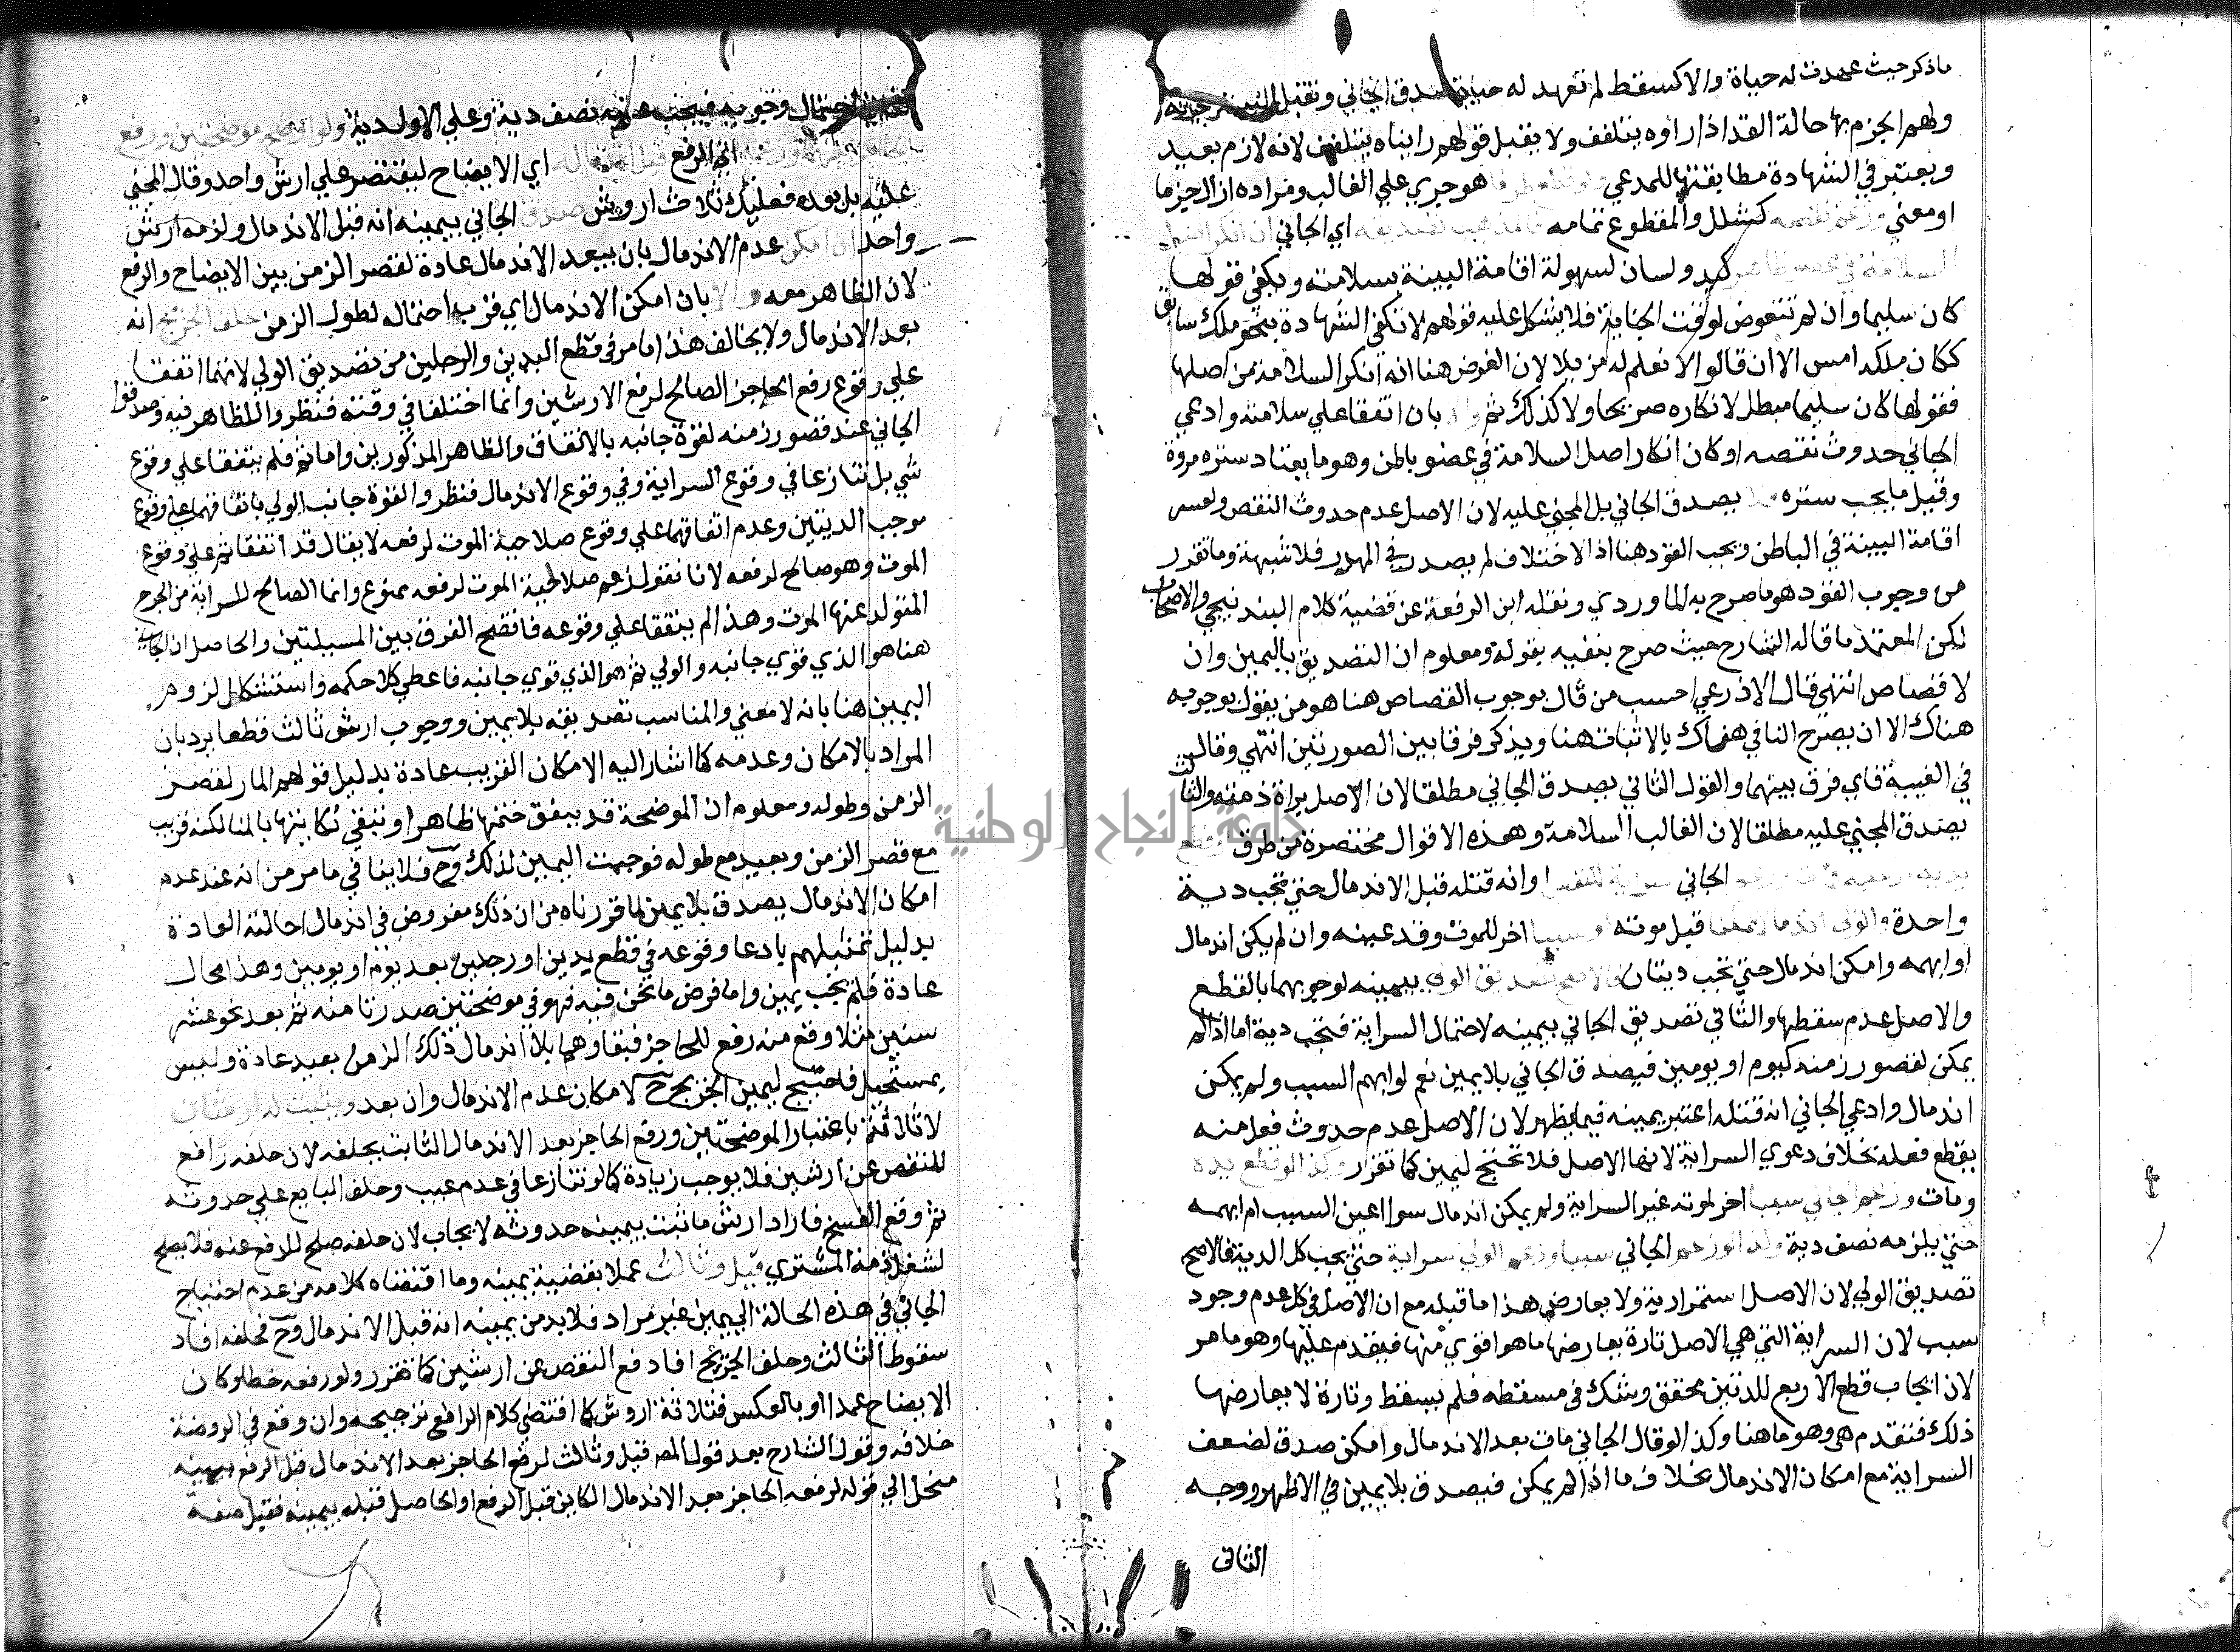 ماذكر حيث عهدت له حياة والا كسقط لم تعهد له حياة صدق الجاني وتقبل البينة
ولهم الجزم بها حالة القد اذا راوه يتلفف ولا يقبل قولهم رايناه يتلفف لانه لازم بعيد
ويعتبر في الشهادة مطابقتها للمدعي هو جري علي الغالب ومراده ازال جزما
او معني كشلل والمقطوع تمامه اي الجاني ان انكر
السلامة في عضو ظاهر كيد ولسان لسهولة اقامة البينة بسلامته ويكفي قولها
كان سليما وان لم تتعرض لوقت الجناية فلا يشكل عليه قولهم لا تكفي الشهادة بنحو ملك سابق
ككان ملكه امس الا ان قالوا لا نعلم له مزيلا لان الفرض هنا انه انكر السلامة من اصلها
فقولها كان سليما مبطل لانكاره صريحا ولا كذلك ثم بان اتفقا علي سلامته وادعي
الجاني حدوث نقصه او كان انكار اصل السلامة في عضو باطن وهو ما يعتاد ستره مروة
وقيل ما يجب ستره يصدق الجاني بل المجني عليه لان الاصل عدم حدوث النقص ولعسر
اقامة البينة في الباطن ويجب القود هنا اذ الاختلاف لم يصدر في المهدر فلا شبهة وما تقرر
من وجوب القود هو ما صرح به الماوردي ونقله ابن الرفعة عن قضية كلام البندنيجي والاصحاب
لكن المعتمد ما قاله الشارح حيث صرح بنفيه بقوله ومعلوم ان التصديق باليمين وان
لا قصاص انتهي قال الاذرعي احسب من قال بوجوب القصاص هنا هو من يقول بوجوبه
هناك الا ان يصرح النافي هناك بالاثبات هنا ويذكر فرقا بين الصورتين انتهي وقال
في الغيبة فاي فرق بينهما والقول الثاني يصدق الجاني مطلقا لان الاصل براة ذمته والثالث
يصدق المجني عليه مطلقا لان الغالب السلامة وهذه الاقوال مختصرة من طرق
الجاني سراية او انه قتله قبل الاندمال حتي تجب دية
واحدة والولي اندمالا ممكنا قبل موته او سببا اخر للموت وقد عينه وان لم يكن اندمال
او ابهمه وامكن اندمال حتي تجب ديتان فالاصح تصديق الولي بيمينه لوجوبهما بالقطع
والاصل عدم سقطها والثاني تصديق الجاني بيمينه لاحتمال السراية فتجب دية اما اذا لم
يمكن لقصور زمنه كيوم او يومين فيصدق الجاني بلا يمين نعم لو ابهم السبب ولم يمكن
اندمال وادعي الجاني انه قتله اعتبر يمينه فيما يظهر لان الاصل عدم حدوث فعل منه
يقطع فعله بخلاف دعوي السراية لانها الاصل فلا تحتج ليمين كما تقرر وكذا لو قطع يده
ومات وزعم جاني سببا اخر لموته غير السراية ولم يمكن اندمال سوا اعين السبب ام ابهمه
حتي يلزمه نصف دية الجاني سببا وزعم الولي سراية حتي يجب كل الدية فالاصح
تصديق الولي لان الاصل استمرارية ولا يعارض هذا ما قبله مع ان الاصل في كل عدم وجود
سبب لان السراية التي هي الاصل تارة يعارضها ما هو اقوي منها فيقدم عليها وهو ما مر
لان ايجاب قطع الاربع للديتين محقق وشك في مسقطه فلم يسقط وتارة لا يعارضها
ذلك فتقدم هي وهو ما هنا وكذا لو قال الجاني مات بعد الاندمال وامكن صدق لضعف
السراية مع امكان الاندمال بخلاف ما اذا لم يمكن فيصدق بلا يمين في الاظهر ووجه
الثاني
احتمال وجوبه فيجب عنده نصف دية وعلي الاول دية ولو اوضح موضحتين ورفع
اي الرفع قبل اندماله اي الايضاح ليقتصر علي ارش واحد وقال المجني
عليه بل بعده فعليك ثلاث اروش صدق الجاني بيمينه انه قبل الاندمال ولزمه ارش
واحد ان امكن عدم الاندمال بان يبعد الاندمال عادة لقصر الزمن بين الايضاح والرفع
لان الظاهر معه والا بان امكن الاندمال اي قرب احتماله لطول الزمن حلف الجريح انه
بعد الاندمال ولا يخالف هذا ما مر في قطع اليدين والرجلين من تصديق الولي لانهما اتفقا
علي وقوع رفع الحاجز الصالح لرفع الارشين وانما اختلفا في وقته فنظروا للظاهر فيه وصدقوا
الجاني عند قصور زمنه لقوة جانبه بالاتفاق والظاهر المذكورين واما ثم فلم يتفقا علي وقوع
شي بل تنازعا في وقوع السراية وفي وقوع الاندمال فنظروا لقوة جانب الولي باتفاقهما علي وقوع
موجب الديتين وعدم اتفاقهما علي وقوع صلاحية الموت لرفعه لا يقال قد اتفقا ثم علي وقوع
الموت وهو صالح لرفعه لانا نقول زعم صلاحية الموت لرفعه ممنوع وانما الصالح للسراية من الجرح
المتولد عنها الموت وهذا لم يتفقا علي وقوعه فاتضح الفرق بين المسيلتين والحاصل ان الجاني
هنا هو الذي قوي جانبه والولي ثم هو الذي قوي جانبه فاعطي كلا حكمه واستشكل لزوم
اليمين هنا بانه لا معني والمناسب تصديقه بلا يمين ووجوب ارش ثالث قطعا يرد بان
المراد بالامكان وعدمه كما اشار اليه الامكان القريب عادة بدليل قولهم المار لقصر
الزمن وطوله ومعلوم ان الموضحة قد يتفق ختمها ظاهرا وتبقي نكايتها بالمنا لكنه قريب
مع قصر الزمن وبعيد مع طوله فوجبت اليمين لذلك وح فلا ينافي ما مر من انه عند عدم
امكان الاندمال يصدق بلا يمين لما قررناه من ان ذلك مفروض في اندمال احالته العادة
بدليل تمثيلهم بادعا وقوعه في قطع يدين او رجلين بعد يوم او يومين وهذا محال
عادة فلم تجب يمين واما فرض ما نحن فيه فهو في موضحتين صدرتا منه ثم بعد نحو عشر
سنين مثلا وقع منه رفع للحاجز فبقاوهما بلا اندمال ذلك الزمن بعيد عادة وليس
بمستحيل فاحتيج ليمين الجريح ح لا مكان عدم الاندمال وان بعد وثبت له ارشان
لا ثالث ثم باعتبار الموضحتين ورفع الحاجز بعد الاندمال الثابت بحلفه لان حلفه رافع
للنقص عن ارشين فلا يوجب زيادة كما لو تنازعا في عدم عيب وحلف البايع علي حدوثه
ثم وقع الفسخ فاراد ارش ما ثبت بيمينه حدوثه لا يجاب لان حلفه صلح للدفع عنه فلا يصلح
لشغل ذمة المشتري قيل وثالث عملا بقضية يمينه وما اقتضاه كلامه من عدم احتياج
الجاني في هذه الحالة الي يمين غير مراد فلا بد من يمينه انه قبل الاندمال وح فحلفه افاد
سقوط الثالث وحلف الجريح افاد دفع النقص عن ارشين كما تقرر ولو رفعه خطا وكان
الايضاح عمدا او بالعكس فثلاثة اروش كما اقتضي كلام الرافعي ترجيحه وان وقع في الروضة
خلافه وقول الشارح بعد قول المص قيل وثالث لرفع الحاجز بعد الاندمال قبل الرفع بيمينه
منحل الي قوله لرفعه الحاجز بعد الاندمال الكاين قبل الرفع او الحاصل قبله بيمينه فقيل صفة
جامعة النجاح الوطنية